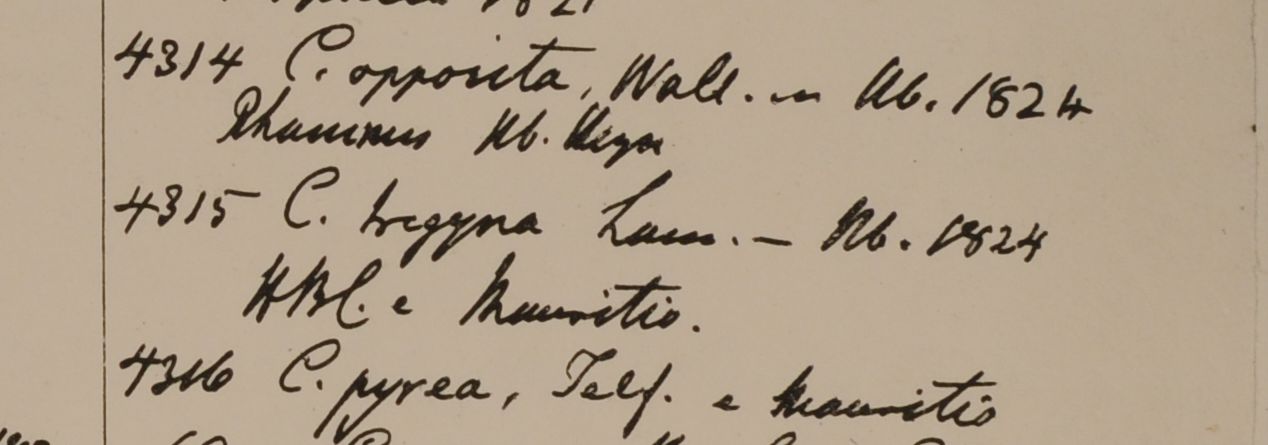 1821
4314 C. opposita, Wall. — Hb. 1824
Rhamnus Hb. Heyn
4315 C. tregyna Lam. — Hb. 1824
HBC. e Mauritio.
4316 C. pyrea, Telf. e Mauritio